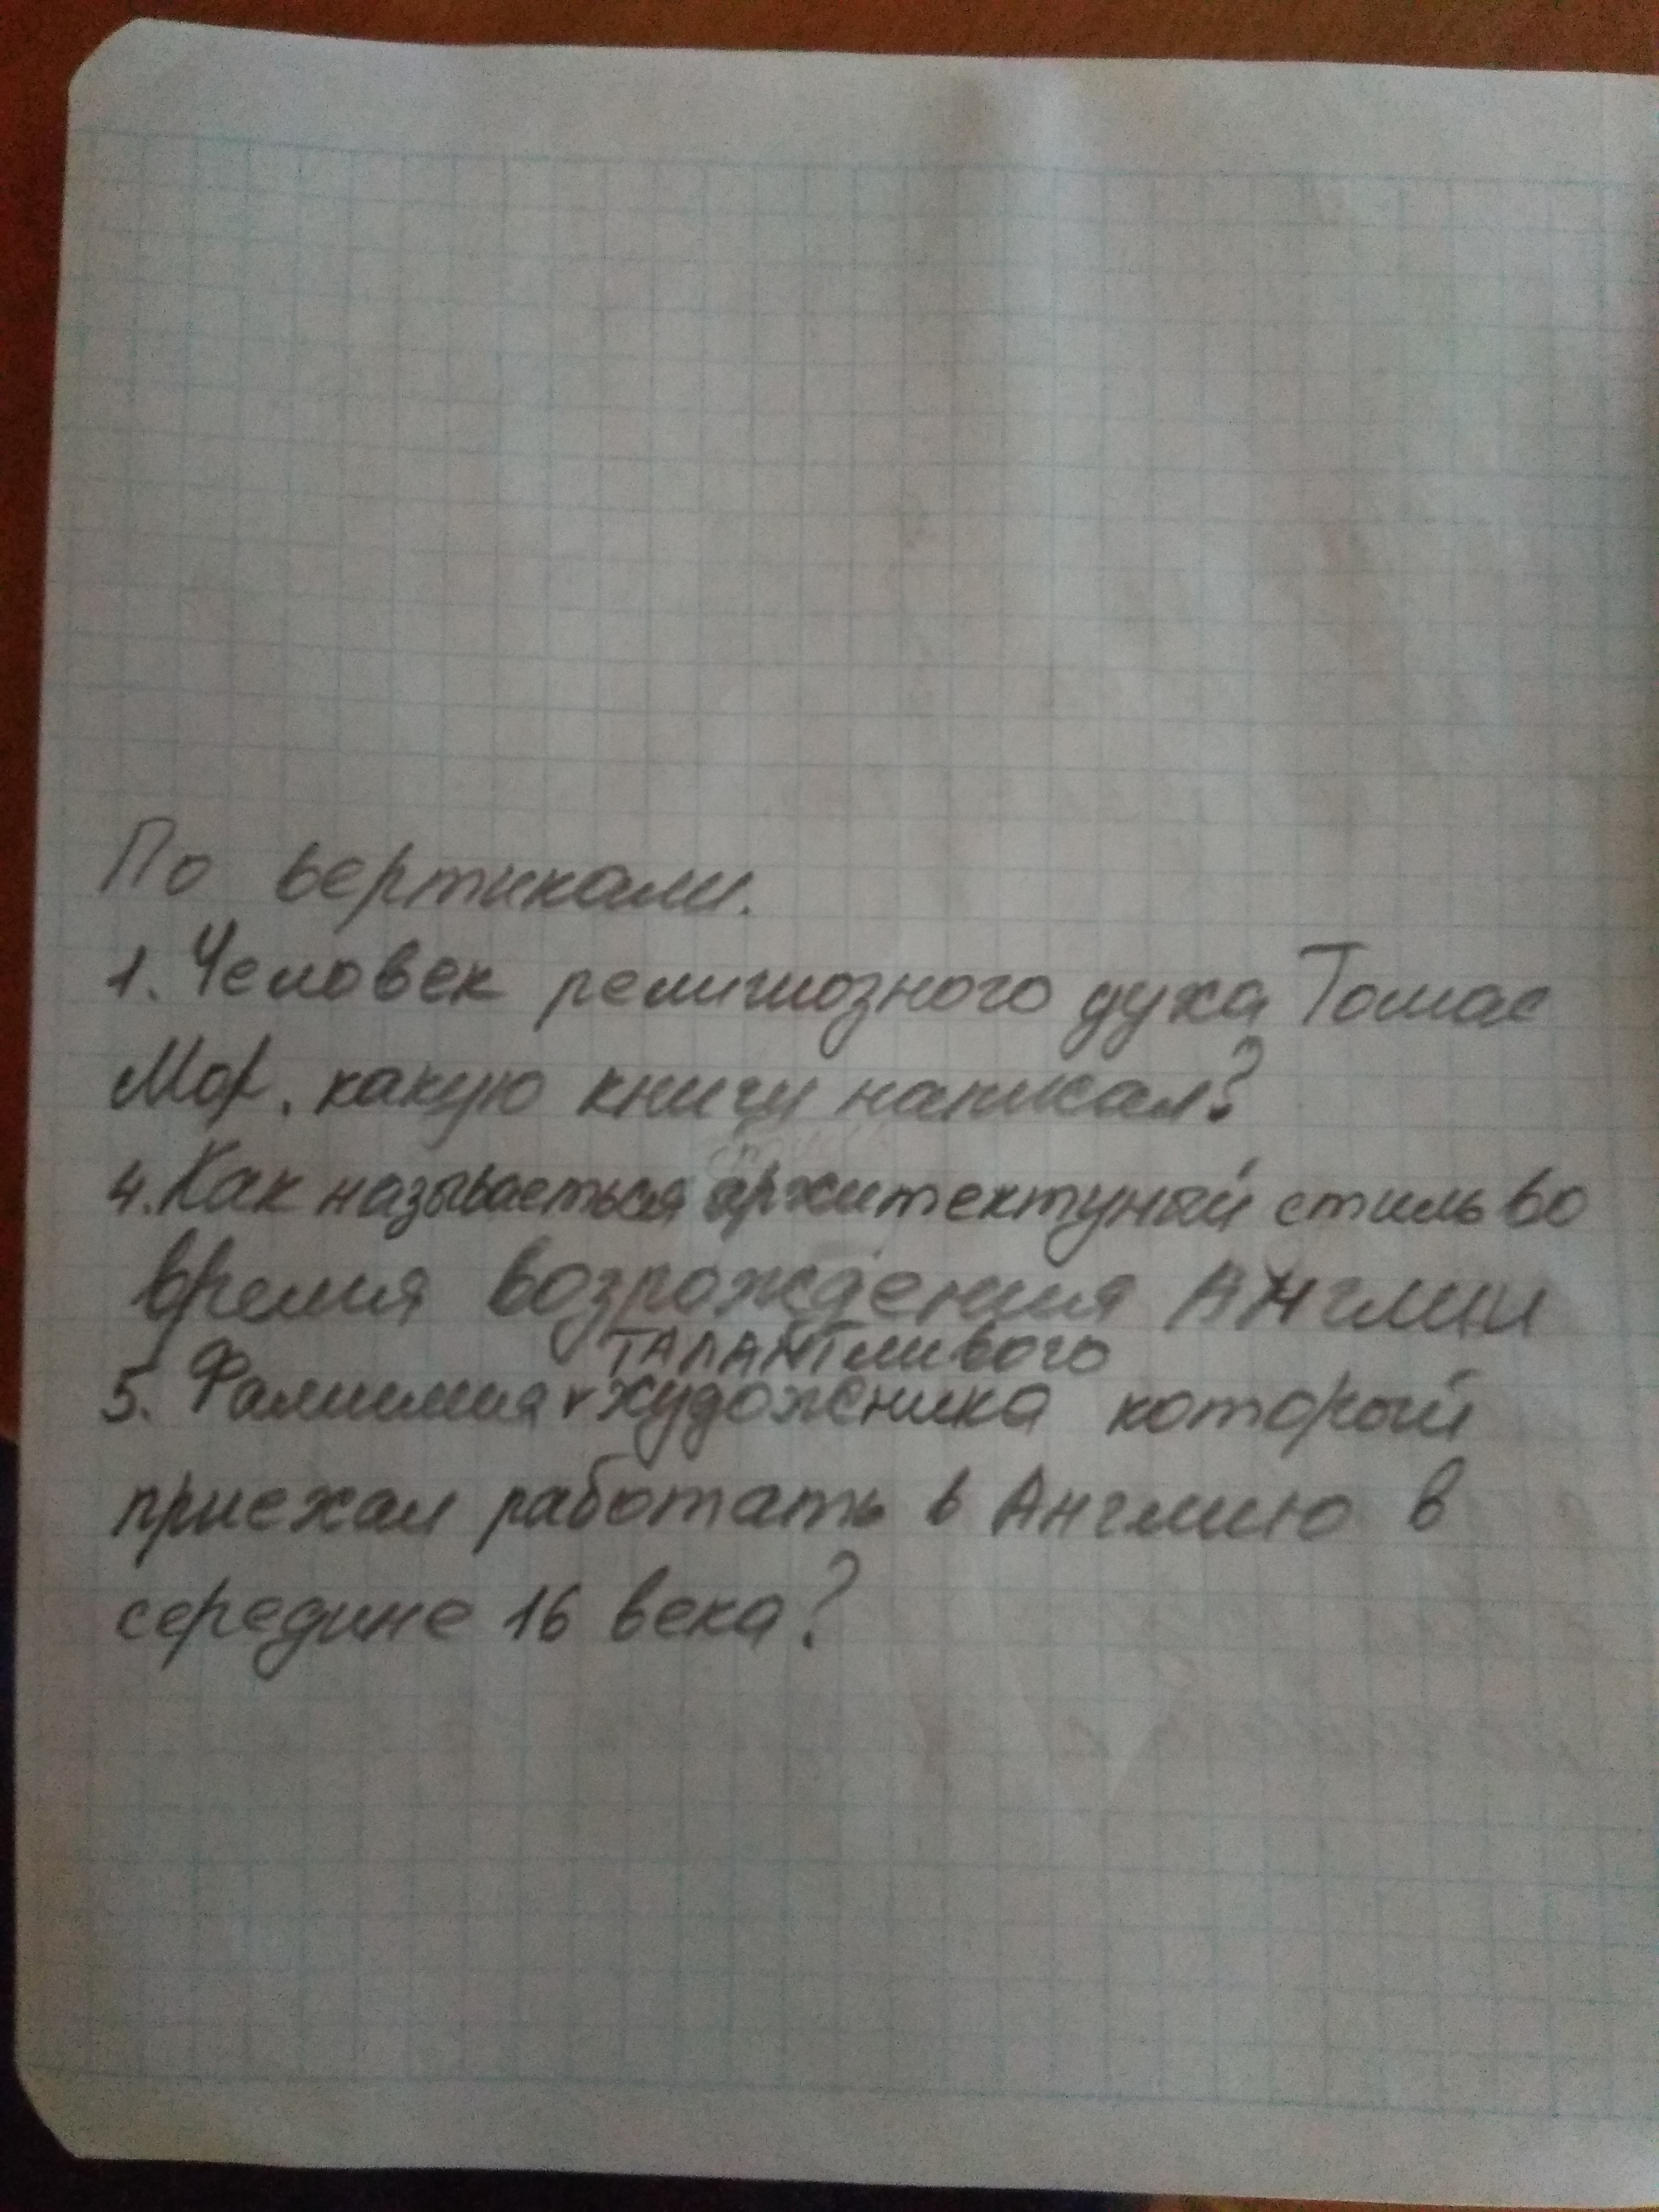 По вертикали.
1. Человек религиозного духа Томас
Мор, какую книгу написал?
4. Как называеться архитектуный стиль во
время возрождения Англии
талантливого
5. Фамилия v художника который
приехал работать в Англию в
середине 16 века?